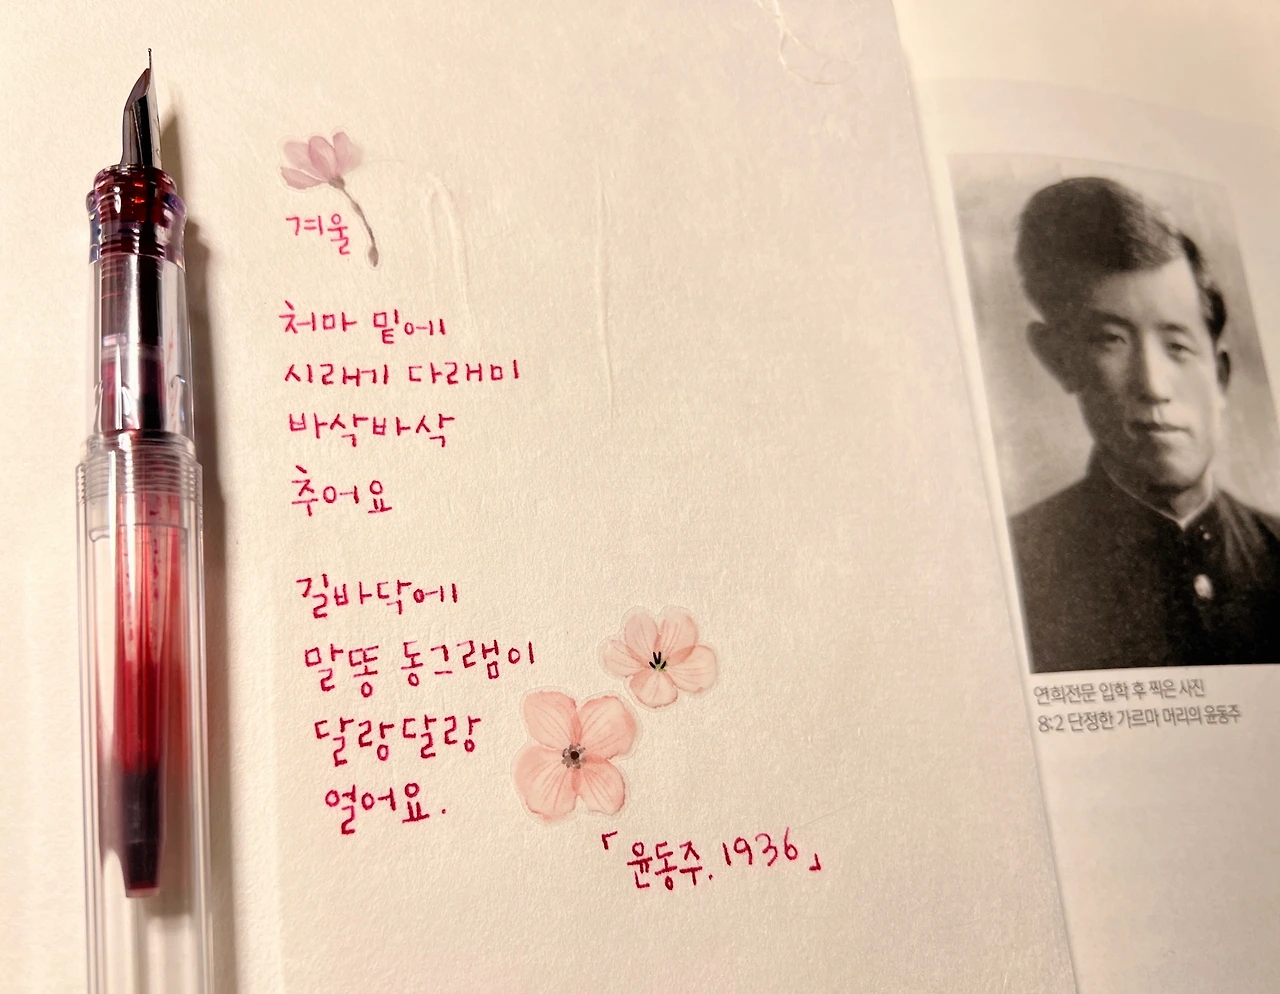 겨울
처마 밑에
시래기 다래미
바삭바삭
추어요
길바닥에
말똥 동그램이
달랑달랑
얼어요.
「윤동주. 1936」
연희전문 입학 후 찍은 사진
8:2 단정한 가르마 머리의 윤동주